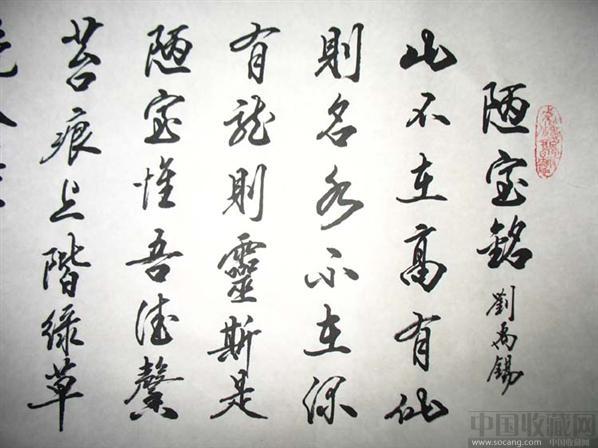 陋室銘 劉禹錫
山不在高有仙
則名水不在深
有龍則靈斯是
陋室惟吾德馨
苔痕上階綠草
中国收藏网
www.socang.com 中国收藏网